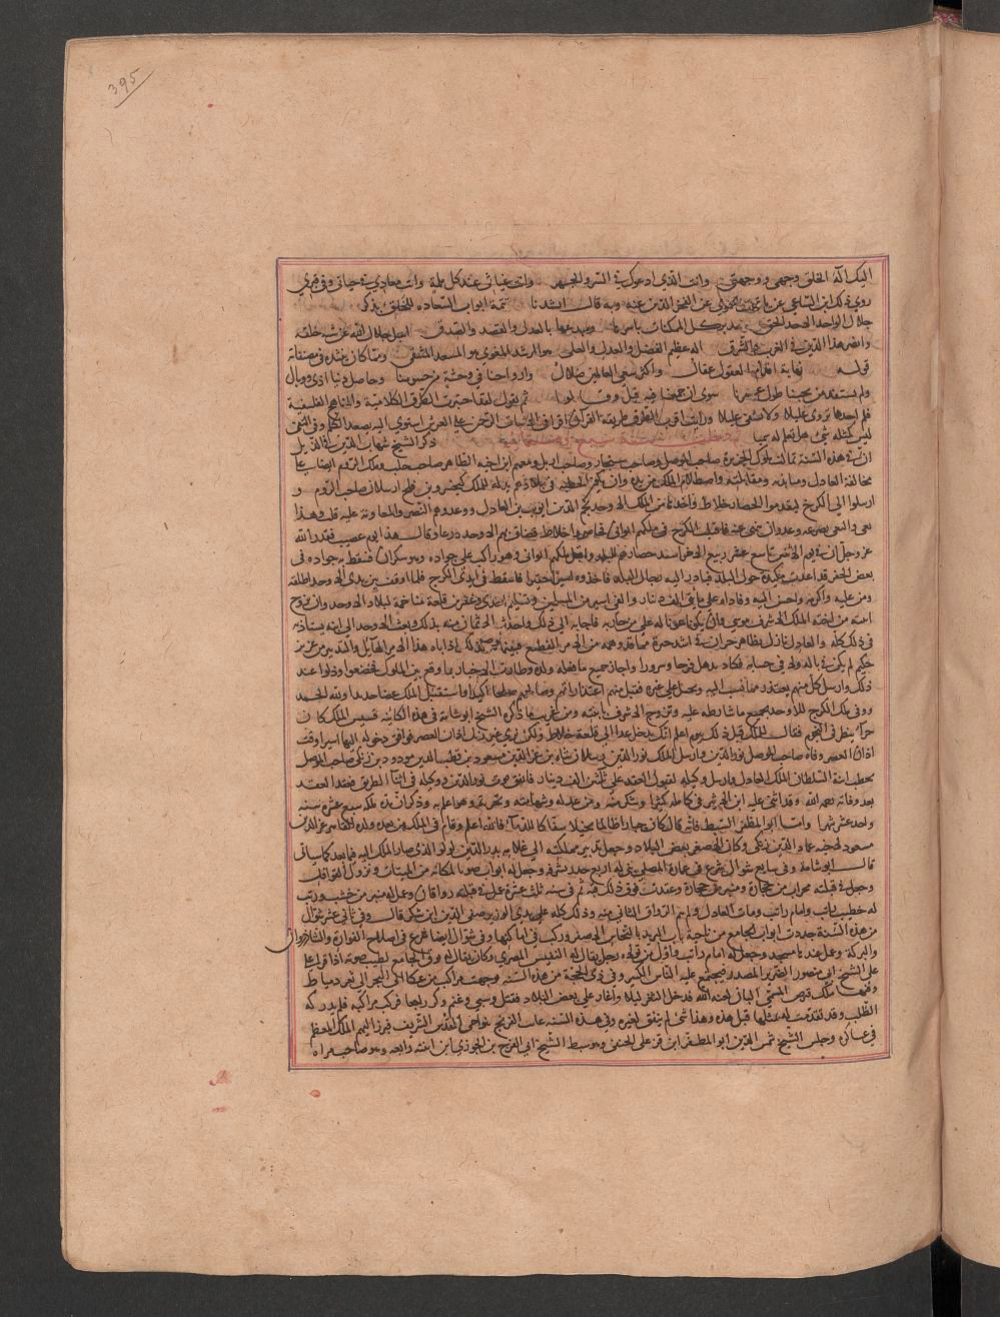 395
اليك اله الخلق وجهي ووجهتي وانت الذي ادعوك في السر والجهر وانت غياثي عند كل ملمة وانت معاذي في حياتي وفي قبري
روي ذلك ابن الساعي عن ياقوت الحموي عن ابن الفخر الدين عنه وبه قال انشدنا تتمة ابواب السعاده للخلق بذكر
جلال الواحد الاحد الحق مدبر كل الممكنات باسرها ومبدعها بالعدل والقصد والصدق اجل جلال الله عن شبه خلقه
وانصر هذا الدين في الغرب والشرق اله عظيم الفضل والعدل والعلي هو المرشد المغوي هو المسعد المشقي ومما كان ينشده في مصنفاته
قوله نهاية اقدام العقول عقال واكثر سعي العالمين ضلال وارواحنا في وحشة من جسومنا وحاصل دنيانا اذى ووبال
ولم نستفد من بحثنا طول عمرنا سوى ان جمعنا فيه قيل وقالوا ثم يقول لقد اختبرت الطرق الكلامية والمناهج الفلسفية
فلم اجدها تروي غليلا ولا تشفي عليلا ورايت اقرب الطرق طريقة القران اقرا في الاثبات الرحمن على العرش استوى اليه يصعد الكلم وفي النفي
ليس كمثله شي هل تعلم له سميا ثم دخلت سنة سبع وستمائة ذكر الشيخ شهاب الدين في الذيل
ان في هذه السنة تمالت ملوك الجزيرة صاحب الموصل وصاحب سنجار وصاحب اربل ومعهم ابن اخيه الظاهر صاحب حلب وملك الروم ايضا على
مخالفة العادل ومنابذته ومقابلته واصطلام الملك من يده وان تكون الخطبة في بلادهم للملك كيخسرو بن قلج ارسلان صاحب الروم و
ارسلوا الي الكرج ليقدموا لحصار خلاط واخذها من الملك الاوحد نجم الدين ايوب بن العادل ووعدوهم النصر والمعاونة عليه قلت وهذا
بغي والبغي يصرعه وعدوان نهي عنه فاقبلت الكرج في ملكهم ايواني فحاصروا خلاط فضاق بهم الاوحد ذرعا وقال هذا يوم عصيب فقدر الله
عز وجل ان في يوم الاثنين تاسع عشر ربيع الاخر اشتد حصارهم للبلد واقبل ملكهم ايواني وهو راكب على جواده وهو سكران فسقط به جواده في
بعض الحفر قد اعدت مكيدة حول البلد فبادر اليه رجال البلد فاخذوه اسيرا حقيرا فاسقط في ايدي الكرج فلما اوقف بين يدي الاوحد اطلقه
ومن عليه واكرمه واحسن اليه وفاداه على مائتي الف دينار والفي اسير من المسلمين وتسليم احدى وعشرين قلعة متاخمة لبلاد الاوحد وان يزوج
ابنته من اخيه الملك الاشرف موسى وان يكون عونا له على من حاربه فاجابه الي ذلك واخذت الايمان منه بذلك وبعث الاوحد الي ابيه يستاذنه
في ذلك كله والعادل نازل بظاهر حران في اشد حدة مما قد دهمه من الامر الفظيع فبينما هو كذلك اذ اتاه هذا الامر الهايل والتدبير من عزيز
حكيم لم يكن في باله ولا في حسابه فكاد يذهل فرحا وسرورا واجاز جميع ما فعله ولده وطارت الاخبار بما وقع بين الملوك فخضعوا وذلوا عند
ذلك وارسل كل منهم يعتذر مما نسب اليه ويحيل على غيره فقبل منهم اعتذاراتهم وصالحهم صلحا اكيدا واستقبل الملك عصا جديدا ولله الحمد
ووفى ملك الكرج للاوحد بجميع ما شارطه عليه وتزوج الاشرف بابنته ومن غريب ما ذكره الشيخ ابو شامة في هذه الكائنة قسيس الملك كان
حزاء ينظر في النجوم فقال للملك قبل ذلك بيوم اعلم انك تدخل غدا الي قلعة خلاط ولكن بزي غير زيك اذان العصر فوافق دخوله اليها اسيرا وقت
اذان العصر وفاة صاحب الموصل نور الدين وارسل الملك نور الدين ارسلان شاه بن عز الدين مسعود بن قطب الدين مودود بن زنكي صاحب الموصل
يخطب ابنة السلطان الملك العادل وارسل وكيله لقبول العقد على ثلثين الف دينار فاتفق موت نور الدين ووكيله في اثنا الطريق فعقد العقد
بعد وفاته رحمه الله وقد اثنى عليه ابن الاثير في كامله كثيرا وشكر منه ومن عدله وشهامته وهو اعلم به وذكر ان مدة ملكه سبع عشرة سنة
واحد عشر شهرا واما ابو المظفر السبط فانه قال كان جبارا ظالما بخيلا سفاكا للدماء فالله اعلم وقام في الملك من بعده ولده القاهر عز الدين
مسعود لاخيه عماد الدين زنكي وكان الاصغر بعض البلاد وجعل تدبير مملكته الي غلامه بدر الدين لولو الذي صار الملك اليه فيما بعد كما سياتي
قال ابو شامة وفي سابع شوال شرع في عمارة المصلى بني له اربع جدر مشرفة وجعل له ابواب صونا لمكانه من الميتات ونزول القوافل
وجعل في قبلته محراب من حجارة ومنبر من حجارة وعقدت فوق ذلك قبة ثم في سنة ثلث عشرة عمل في قبلته رواقان وعمل له منبر من خشب ورتب
له خطيب راتب وامام راتب ومات العادل ولم يتم الرواق الثاني منه وذلك كله على يدي الوزير صفي الدين ابن شكر قال وفي ثاني عشر شوال
من هذه السنة جددت ابواب الجامع من ناحية باب البريد بالنحاس الاصفر وركبت في اماكنها وفي شوال ايضا شرع في اصلاح الفوارة والشاذروان
والبركة وعمل عندها مسجد وجعل له امام راتب واول من تولاه رجل يقال له النفيس المصري وكان يقال له بوق الجامع لطيب صوته اذا قرا على
على الشيخ ابي منصور الضرير المصدر فيجتمع عليه الناس الكثير وفي ذي الحجة من هذه السنه توجهت مراكب من عكا الى البحر الي ثغر دمياط
وفيها ملك قبرص المسمى اليان لعنه الله فدخل الثغر ليلا واغار على بعض البلاد فقتل وسبي وغنم وكر راجعا فركب مراكبه فلم يدركه
الطلب وقد تقدمت له مثلها قبل هذه وهذا شي لم يتفق لغيره وفي هذه السنة عاثت الفرنج بنواحي القدس الشريف فبرز اليهم الملك المعظم
في عساكره وجلس الشيخ شمس الدين ابو المظفر ابن قزعلي الحنفي وهو سبط الشيخ ابي الفرج بن الجوزي ابن ابنته رابعه وهو صاحب مراه